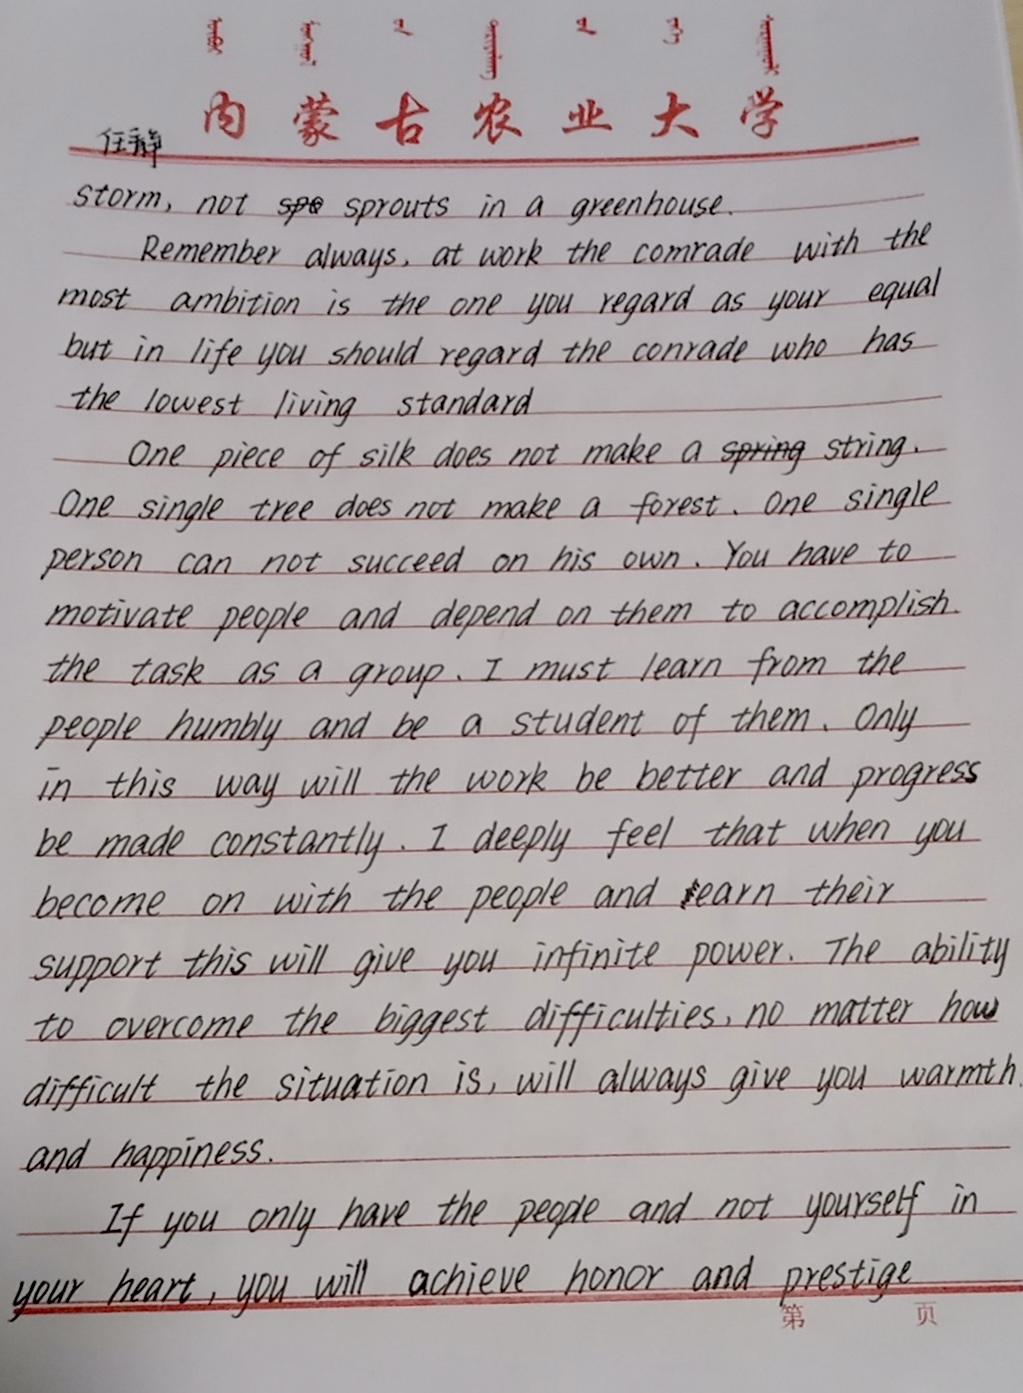 内蒙古农业大学
任静
storm, not sprouts in a greenhouse.
Remember always, at work the comrade with the
most ambition is the one you regard as your equal
but in life you should regard the conrade who has
the lowest living standard
One piece of silk does not make a spring string.
One single tree does not make a forest. One single
person can not succeed on his own. You have to
motivate people and depend on them to accomplish.
the task as a group. I must learn from the
people humbly and be a student of them. Only
in this way will the work be better and progress
be made constantly. I deeply feel that when you
become on with the people and earn their
support this will give you infinite power. The ability
to overcome the biggest difficulties, no matter how
difficult the situation is, will always give you warmth.
and happiness.
If you only have the people and not yourself in
your heart, you will achieve honor and prestige
第 页